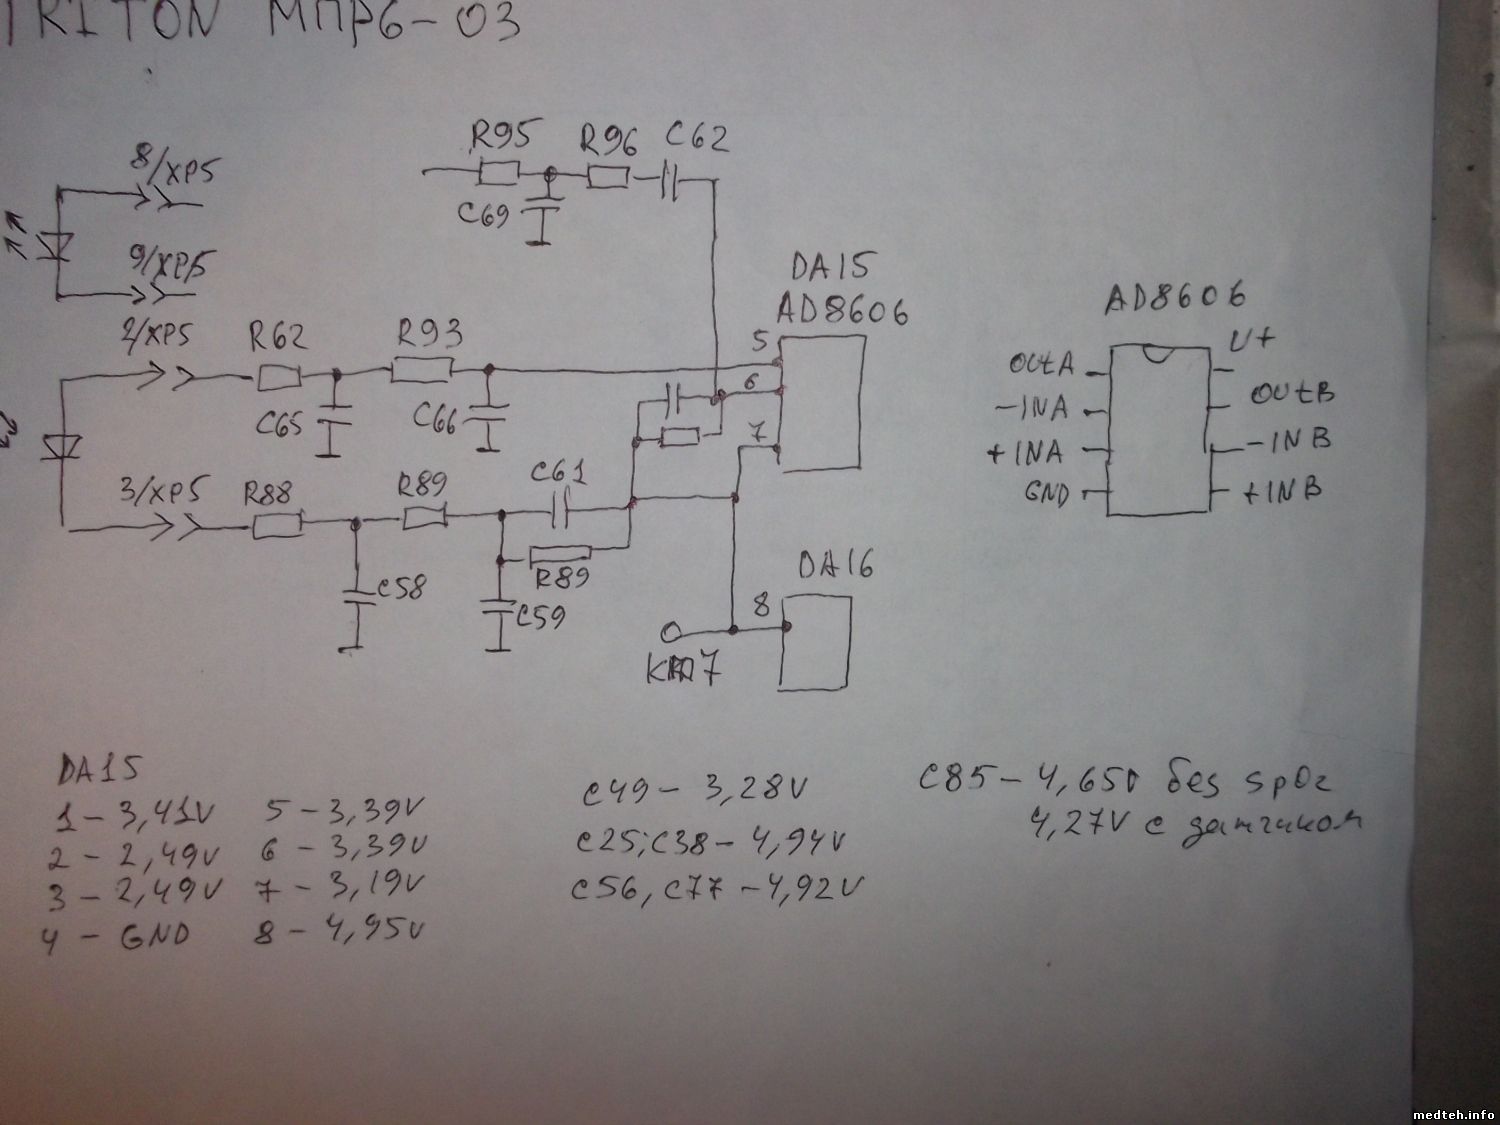 TRITON МПР6-03
R95 R96 C62
8/XP5
C69
9/XP5
DA15
AD8606
AD8606
2/XP5 R62 R93
5
OUTA U+
6
-INA OUTB
C65 C66
7
+INA -INB
3/XP5 R88 R89 C61
GND +INB
R89
DA16
C58 C59
8
DA15
1 - 3,41V 5 - 3,39V
2 - 2,49V 6 - 3,39V
3 - 2,49V 7 - 3,19V
4 - GND 8 - 4,95V
C49 - 3,28V
C25; C38 - 4,94V
C56, C77 - 4,92V
C85 - 4,65V без spO2
4,27V с датчиком
medteh.info